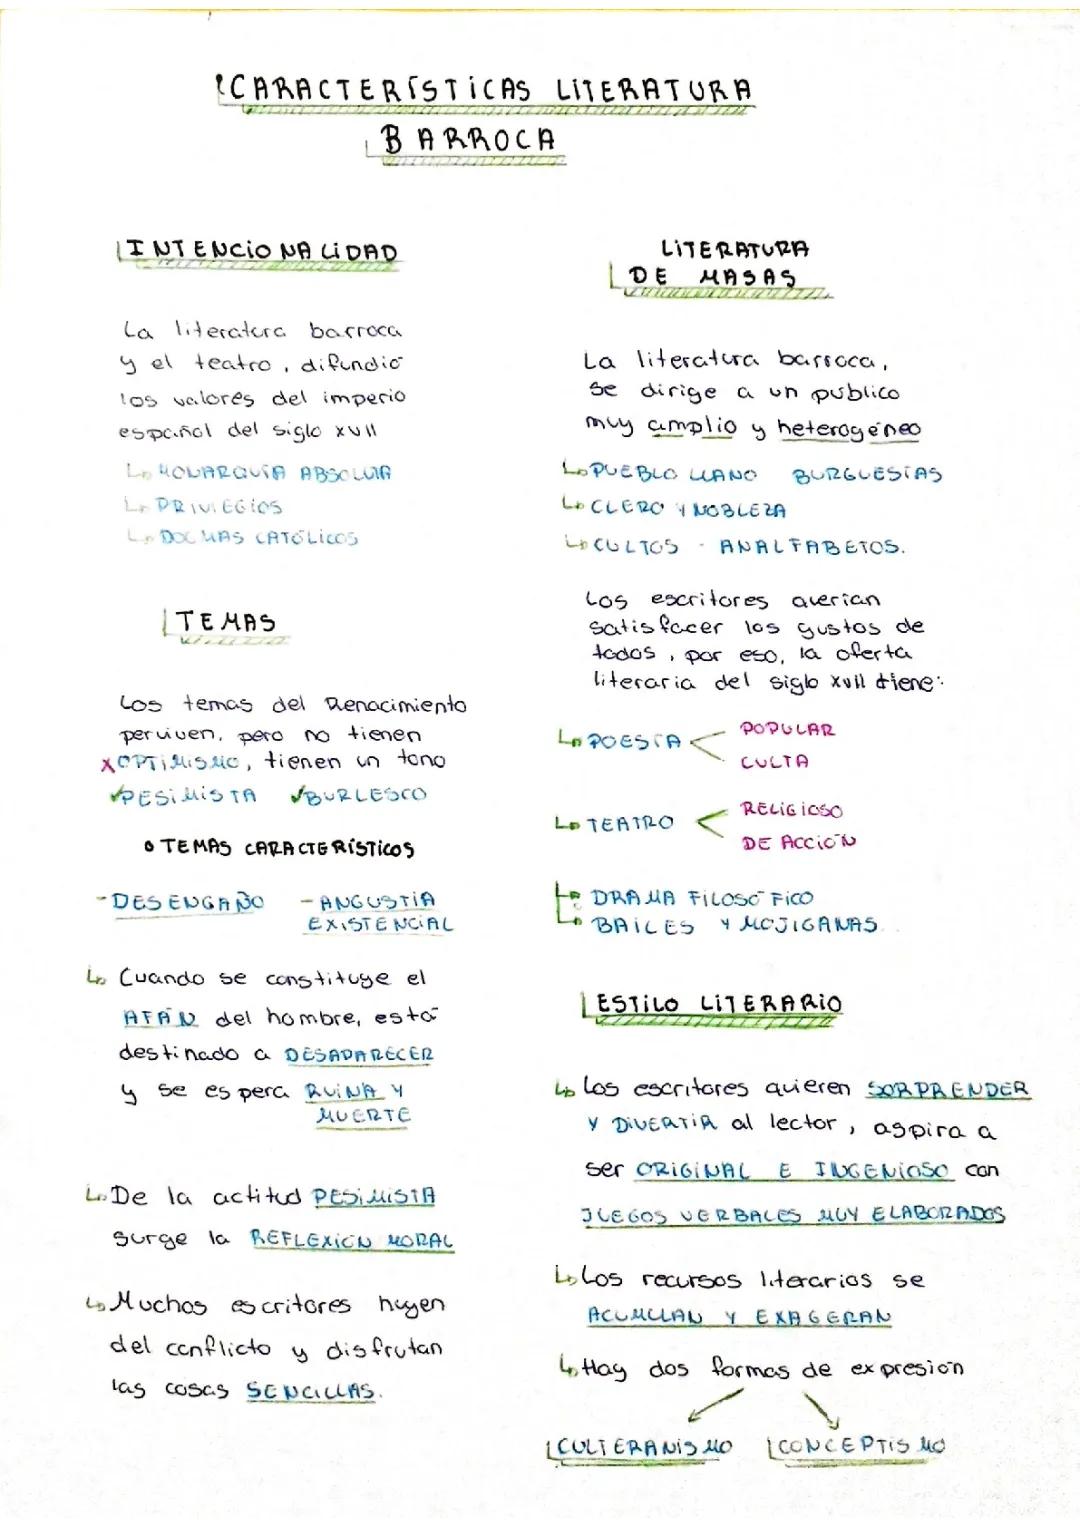 CARACTERÍSTICAS LITERATURA
BARROCA
INTENCIONALIDAD
La literatura barroca
y el teatro, difundió
los valores del imperio
español del siglo XVII
MONARQUÍA ABSOLUTA
PRIVILEGIOS
DOGMAS CATÓLICOS
TEMAS
Los temas del Renacimiento
perviven, pero no tienen
X OPTIMISMO, tienen un tono
✓PESIMISTA ✓BURLESCO
• TEMAS CARACTERÍSTICOS
- DESENGAÑO - ANGUSTIA
EXISTENCIAL
↳ Cuando se constituye el
AFÁN del hombre, está
destinado a DESAPARECER
y se espera RUINA Y
MUERTE
↳ De la actitud PESIMISTA
surge la REFLEXIÓN MORAL
↳ Muchos escritores huyen
del conflicto y disfrutan
las cosas SENCILLAS.
LITERATURA
DE MASAS
La literatura barroca,
se dirige a un público
muy amplio y heterogéneo
↳ PUEBLO LLANO BURGUESÍAS
↳ CLERO Y NOBLEZA
↳ CULTOS - ANALFABETOS.
Los escritores querían
satisfacer los gustos de
todos, por eso, la oferta
literaria del siglo XVII tiene:
↳ POESÍA < POPULAR
CULTA
↳ TEATRO < RELIGIOSO
DE ACCIÓN
↳ DRAMA FILOSÓFICO
↳ BAILES Y MOJIGANAS.
ESTILO LITERARIO
↳ Los escritores quieren SORPRENDER
Y DIVERTIR al lector, aspira a
ser ORIGINAL E INGENIOSO con
JUEGOS VERBALES MUY ELABORADOS
↳ Los recursos literarios se
ACUMULAN Y EXAGERAN
↳ Hay dos formas de expresión
CULTERANISMO CONCEPTISMO